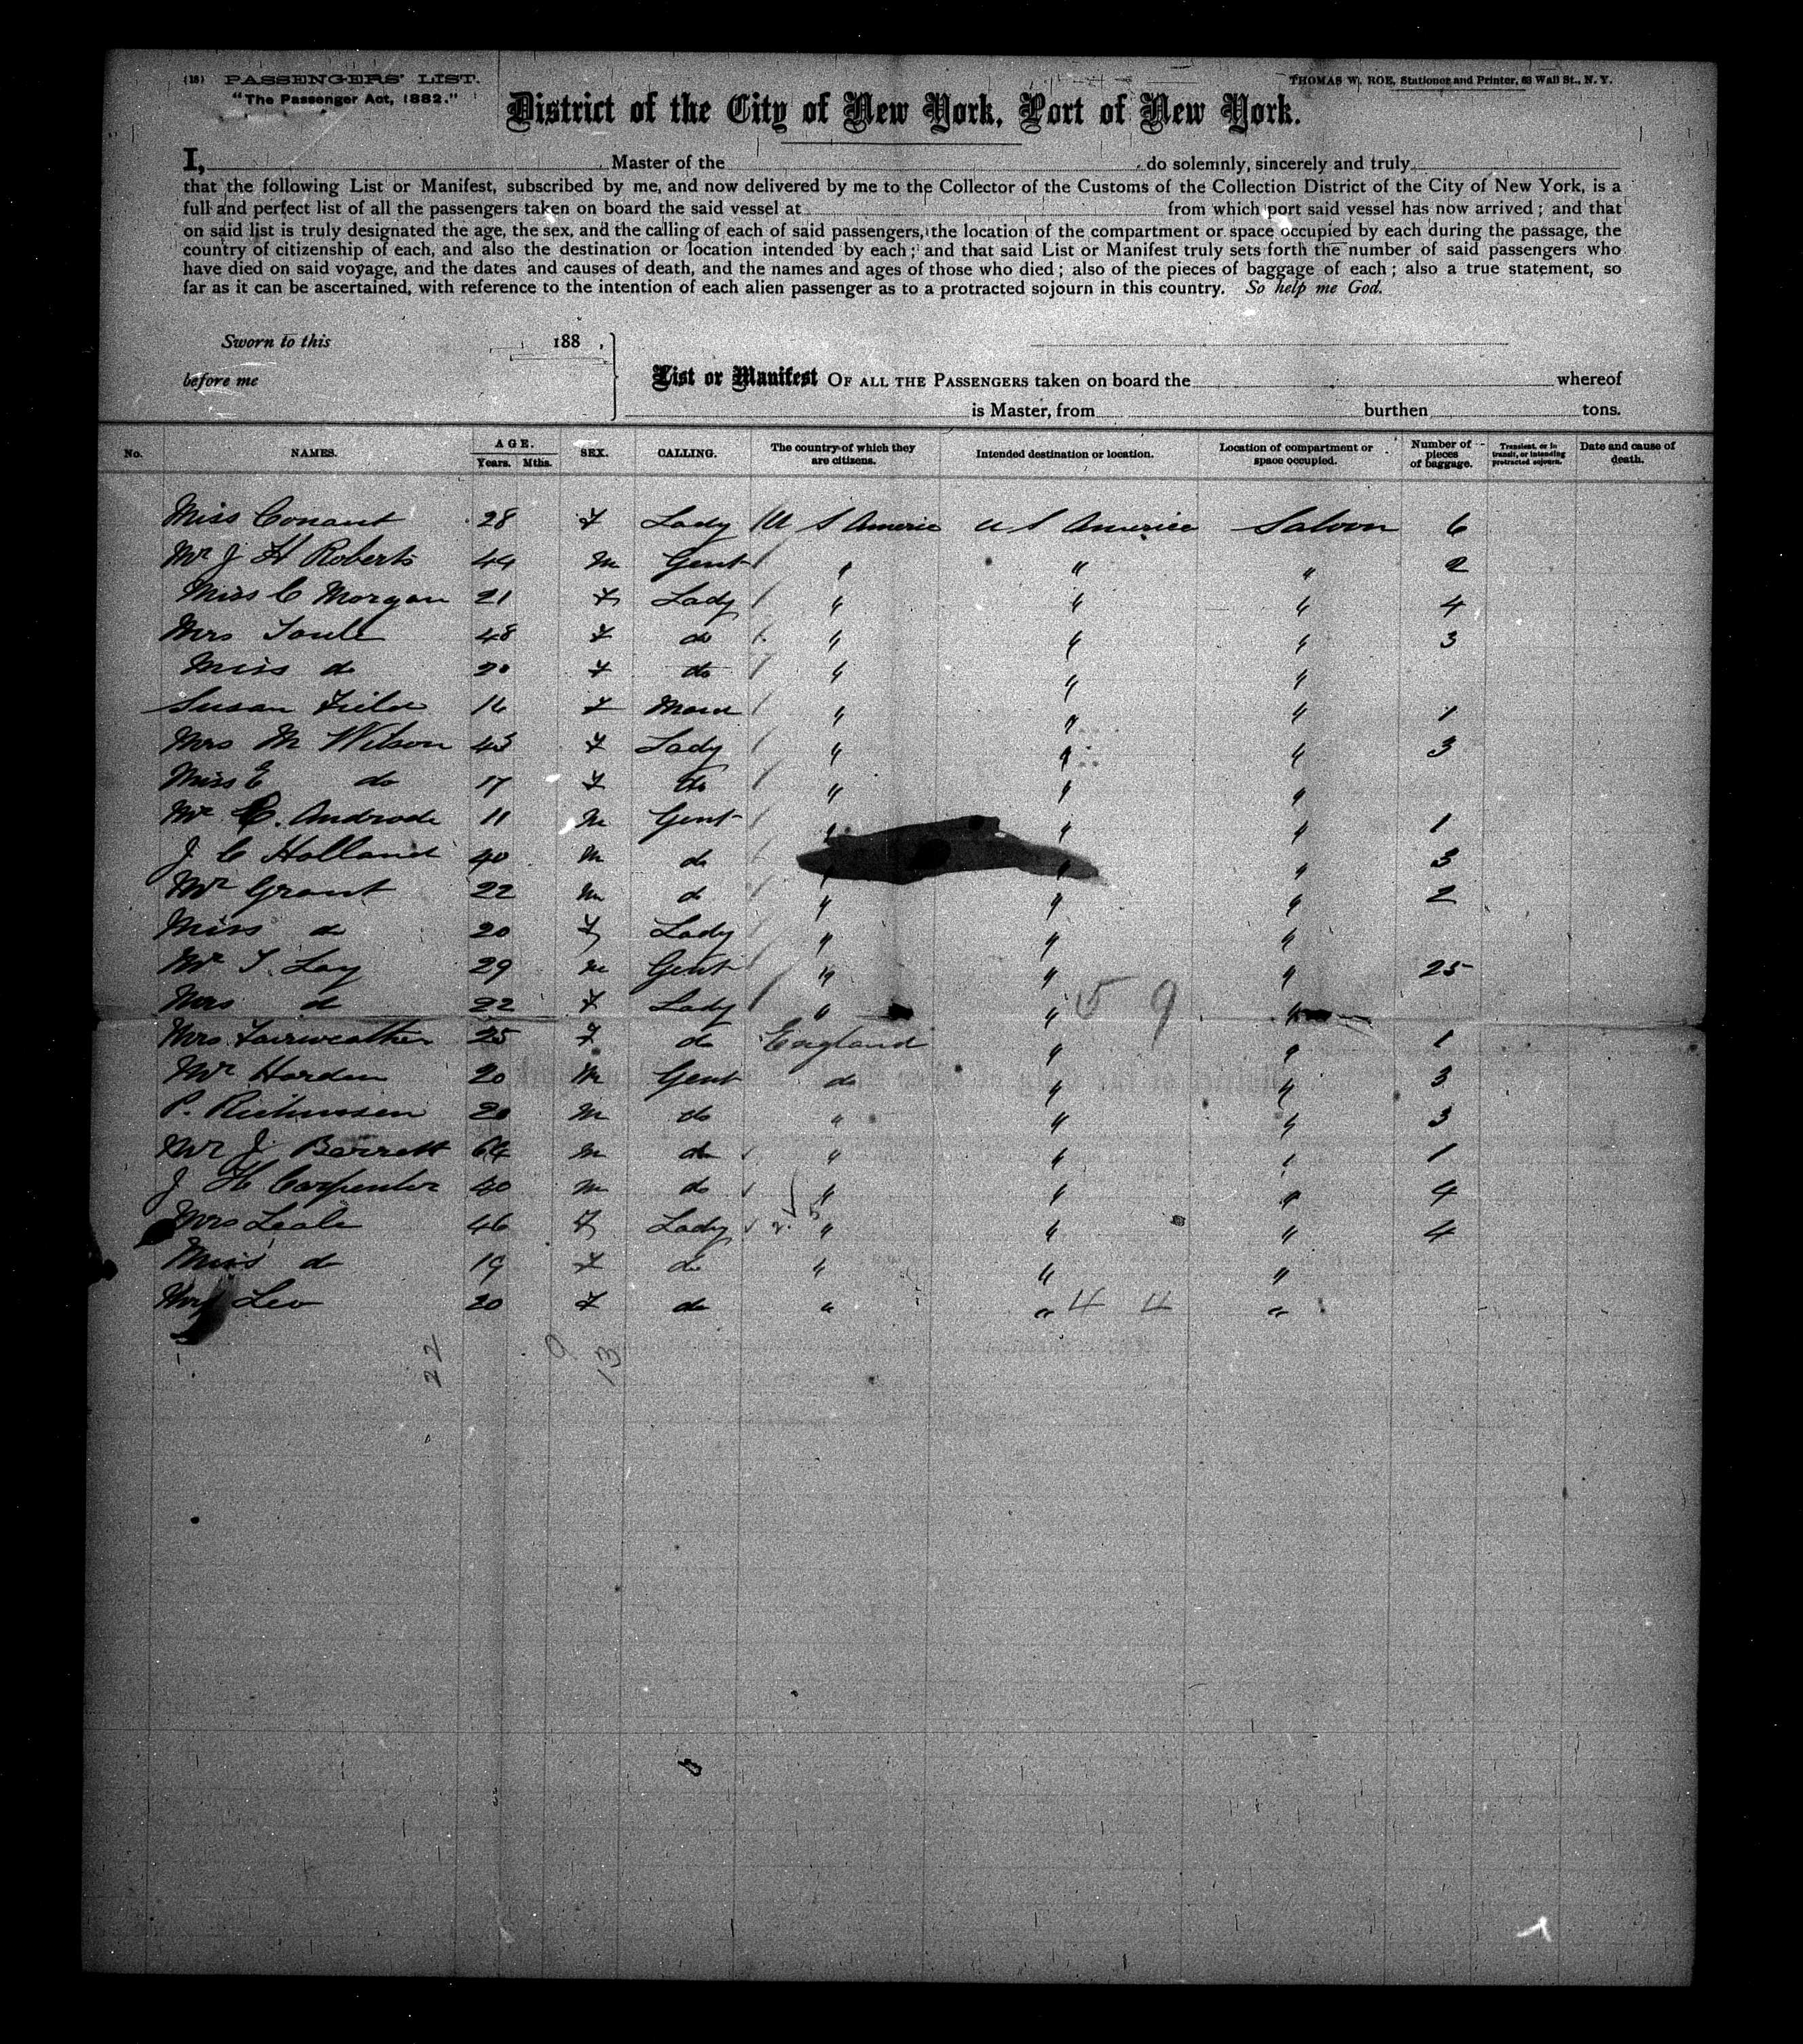 (18) PASSENGERS' LIST. THOMAS W. ROE, Stationer and Printer, 63 Wall St., N. Y.
"The Passenger Act, 1882."
District of the City of New York, Port of New York.
I, Master of the do solemnly, sincerely and truly
that the following List or Manifest, subscribed by me, and now delivered by me to the Collector of the Customs of the Collection District of the City of New York, is a
full and perfect list of all the passengers taken on board the said vessel at from which port said vessel has now arrived; and that
on said list is truly designated the age, the sex, and the calling of each of said passengers, the location of the compartment or space occupied by each during the passage, the
country of citizenship of each, and also the destination or location intended by each; and that said List or Manifest truly sets forth the number of said passengers who
have died on said voyage, and the dates and causes of death, and the names and ages of those who died; also of the pieces of baggage of each; also a true statement, so
far as it can be ascertained, with reference to the intention of each alien passenger as to a protracted sojourn in this country. So help me God.
Sworn to this 188 ,
before me List or Manifest OF ALL THE PASSENGERS taken on board the whereof
is Master, from burthen tons.
No. NAMES. AGE. Years. Mths. SEX. CALLING. The country of which they are citizens. Intended destination or location. Location of compartment or space occupied. Number of pieces of baggage. Transient, or in transit, or intending protracted sojourn. Date and cause of death.
Miss Conant 28 F Lady U S Americ U S America Saloon 6
Mr J H Roberts 44 M Gent " " " 2
Miss C Morgan 21 F Lady " " " 4
Mrs 48 F do " " " 3
Miss do 20 F do " " "
Susan 16 F Maid " " " 1
Mrs M Wilson 43 F Lady " " " 3
Miss E do 17 F do " " "
Mr C. Andrade 11 M Gent " " " 1
J C Holland 40 M do " " " 3
Mr Grant 22 M do " " " 2
Miss do 20 F Lady " " "
Mr T. Lay 29 M Gent " " " 25
Mrs do 22 F Lady " " " 5 9
Mrs Fairweather 25 F do England " " 1
Mr Harden 20 M Gent do " " 3
P. 20 M do " " " 3
Mr J Barrett 64 M do " " " 1
J H Carpenter 40 M do " " " 4
Mrs Leale 46 F Lady " " " 4
Miss do 19 F do " " "
Leo 20 F do " " 4 4 "
22 9 13